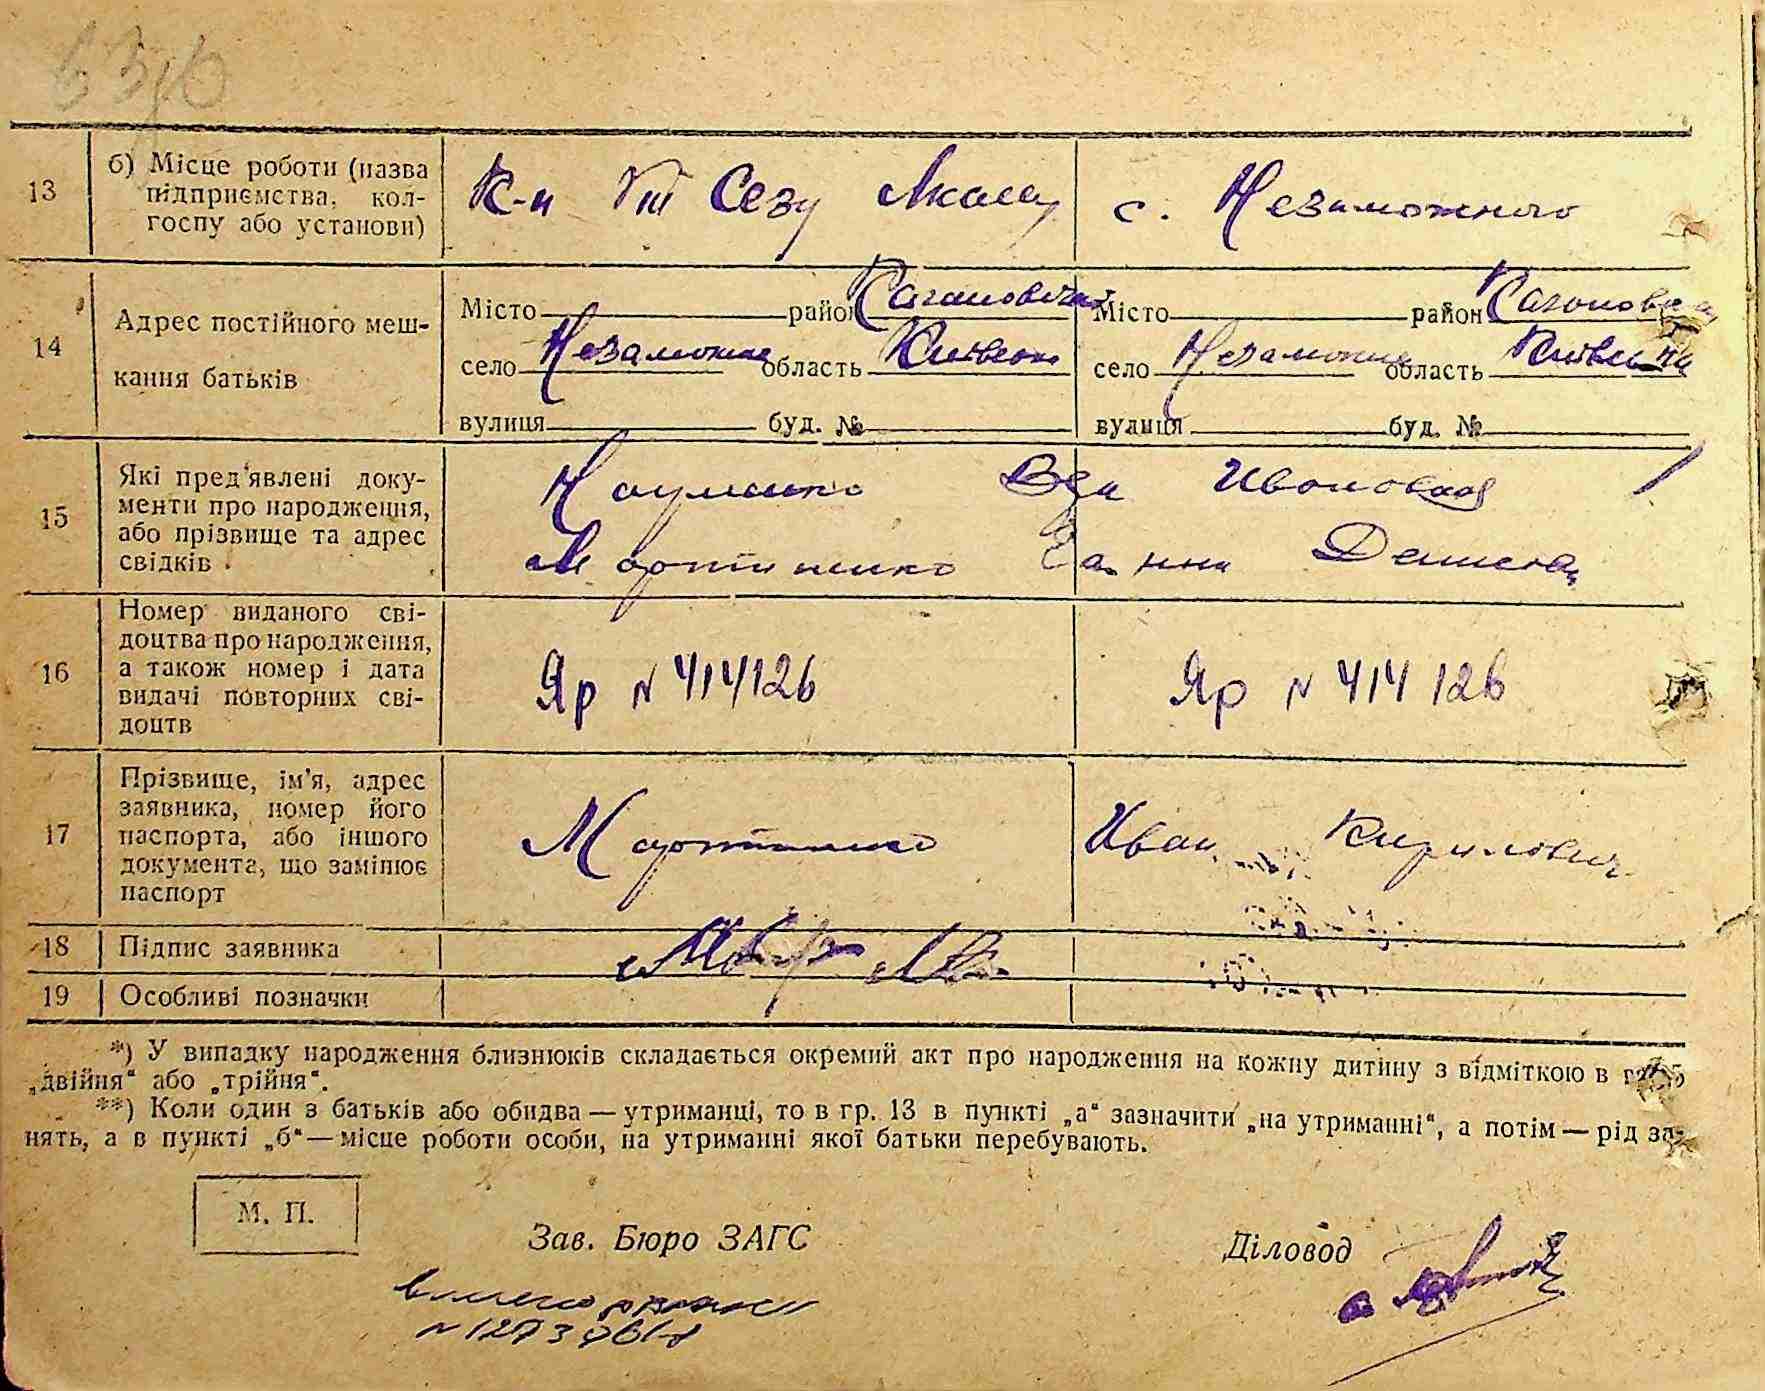 13 б) Місце роботи (назва підприємства, колгоспу або установи)
К-п VIII Сезу с. Незаможного
14 Адрес постійного мешкання батьків
Місто район Кагановича Місто район
село Незаможне область Київська село Незаможне область Київська
вулиця буд. № вулиця буд. №
15 Які пред'явлені документи про народження, або прізвище та адрес свідків
Науменко Ивановна
Мартиненко Ганна Денисовн
16 Номер виданого свідоцтва про народження, а також номер і дата видачі повторних свідоцтв
Яр N 414126 Яр N 414126
17 Прізвище, ім'я, адрес заявника, номер його паспорта, або іншого документа, що замінює паспорт
Мартиненко Иван Кирилович
18 Підпис заявника
19 Особливі позначки
*) У випадку народження близнюків складається окремий акт про народження на кожну дитину з відміткою в гр. 5
„двійня" або „трійня".
**) Коли один з батьків або обидва — утриманці, то в гр. 13 в пункті „а" зазначити „на утриманні", а потім — рід за-
нять, а в пункті „б" — місце роботи особи, на утриманні якої батьки перебувають.
М. П.
Зав. Бюро ЗАГС Діловод